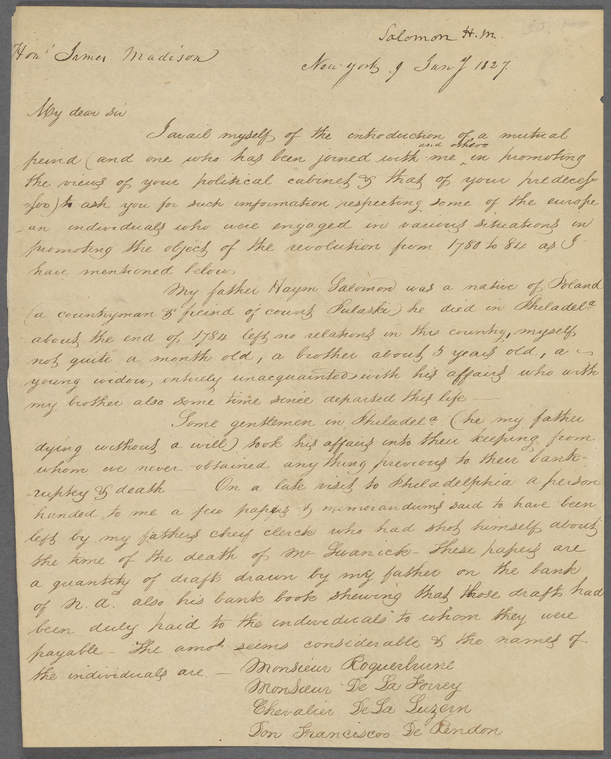 Salomon H. M.
Honl. James Madison
New York 9 Jany 1827
My dear Sir
I avail myself of the introduction of a mutual
and others
freind (and one who has been joined with me in promoting
the views of your political cabinet & that of your predeces
-sor) to ask you for such information respecting some of the europe
-an individuals who were engaged in various situations in
promoting the object of the revolution from 1780 to 84 as I
have mentioned below.
My father Haym Salomon was a native of Poland
(a countryman & freind of count Pulaski) he died in Philadela
about the end of 1784 left no relations in this country, myself
not quite a month old, a brother about 5 years old, a
young widow, entirely unacquainted with his affairs who with
my brother also some time since departed this life —
Some gentlemen in Philadela (he my father
dying without a will) took his affairs into their keeping from
whom we never obtained any thing previous to their bank-
-ruptcy & death — On a late visit to Philadelphia a person
handed to me a few papers & memorandums said to have been
left by my fathers cheif clerk who had shot himself about
the time of the death of Mr Swanick - These papers are
a quantity of drafts drawn by my father on the bank
of N. A. also his bank book shewing that those drafts had
been duly paid to the individuals to whom they were
payable - The amot seems considerable & the names of
the individuals are — Monsieur Roquerbrune
Monsieur De La Forrey
Chevalier De La Luzern
Don Franciscoo De Rendon